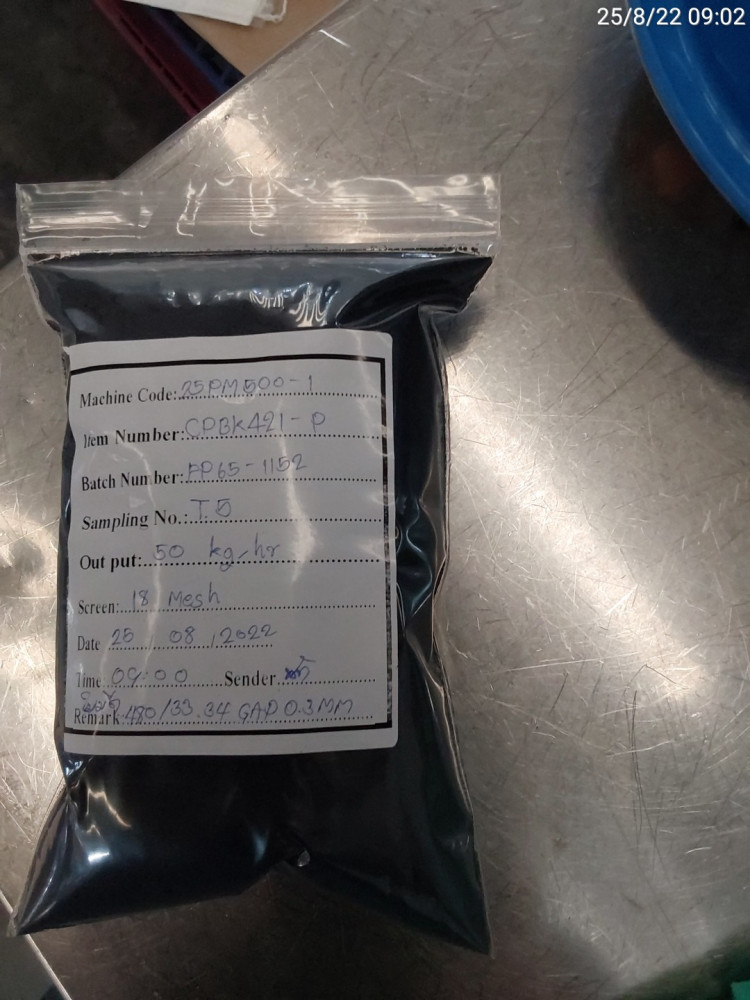 25/8/22 09:02
Machine Code: 25PM500-1
Item Number: CPBK421-P
Batch Number: FP65-1152
Sampling No.: T5
Out put: 50 kg/hr
Screen: 18 Mesh
Date 25 / 08 / 2022
Time 09:00 Sender
Remark 480/33.34 GAP 0.3MM